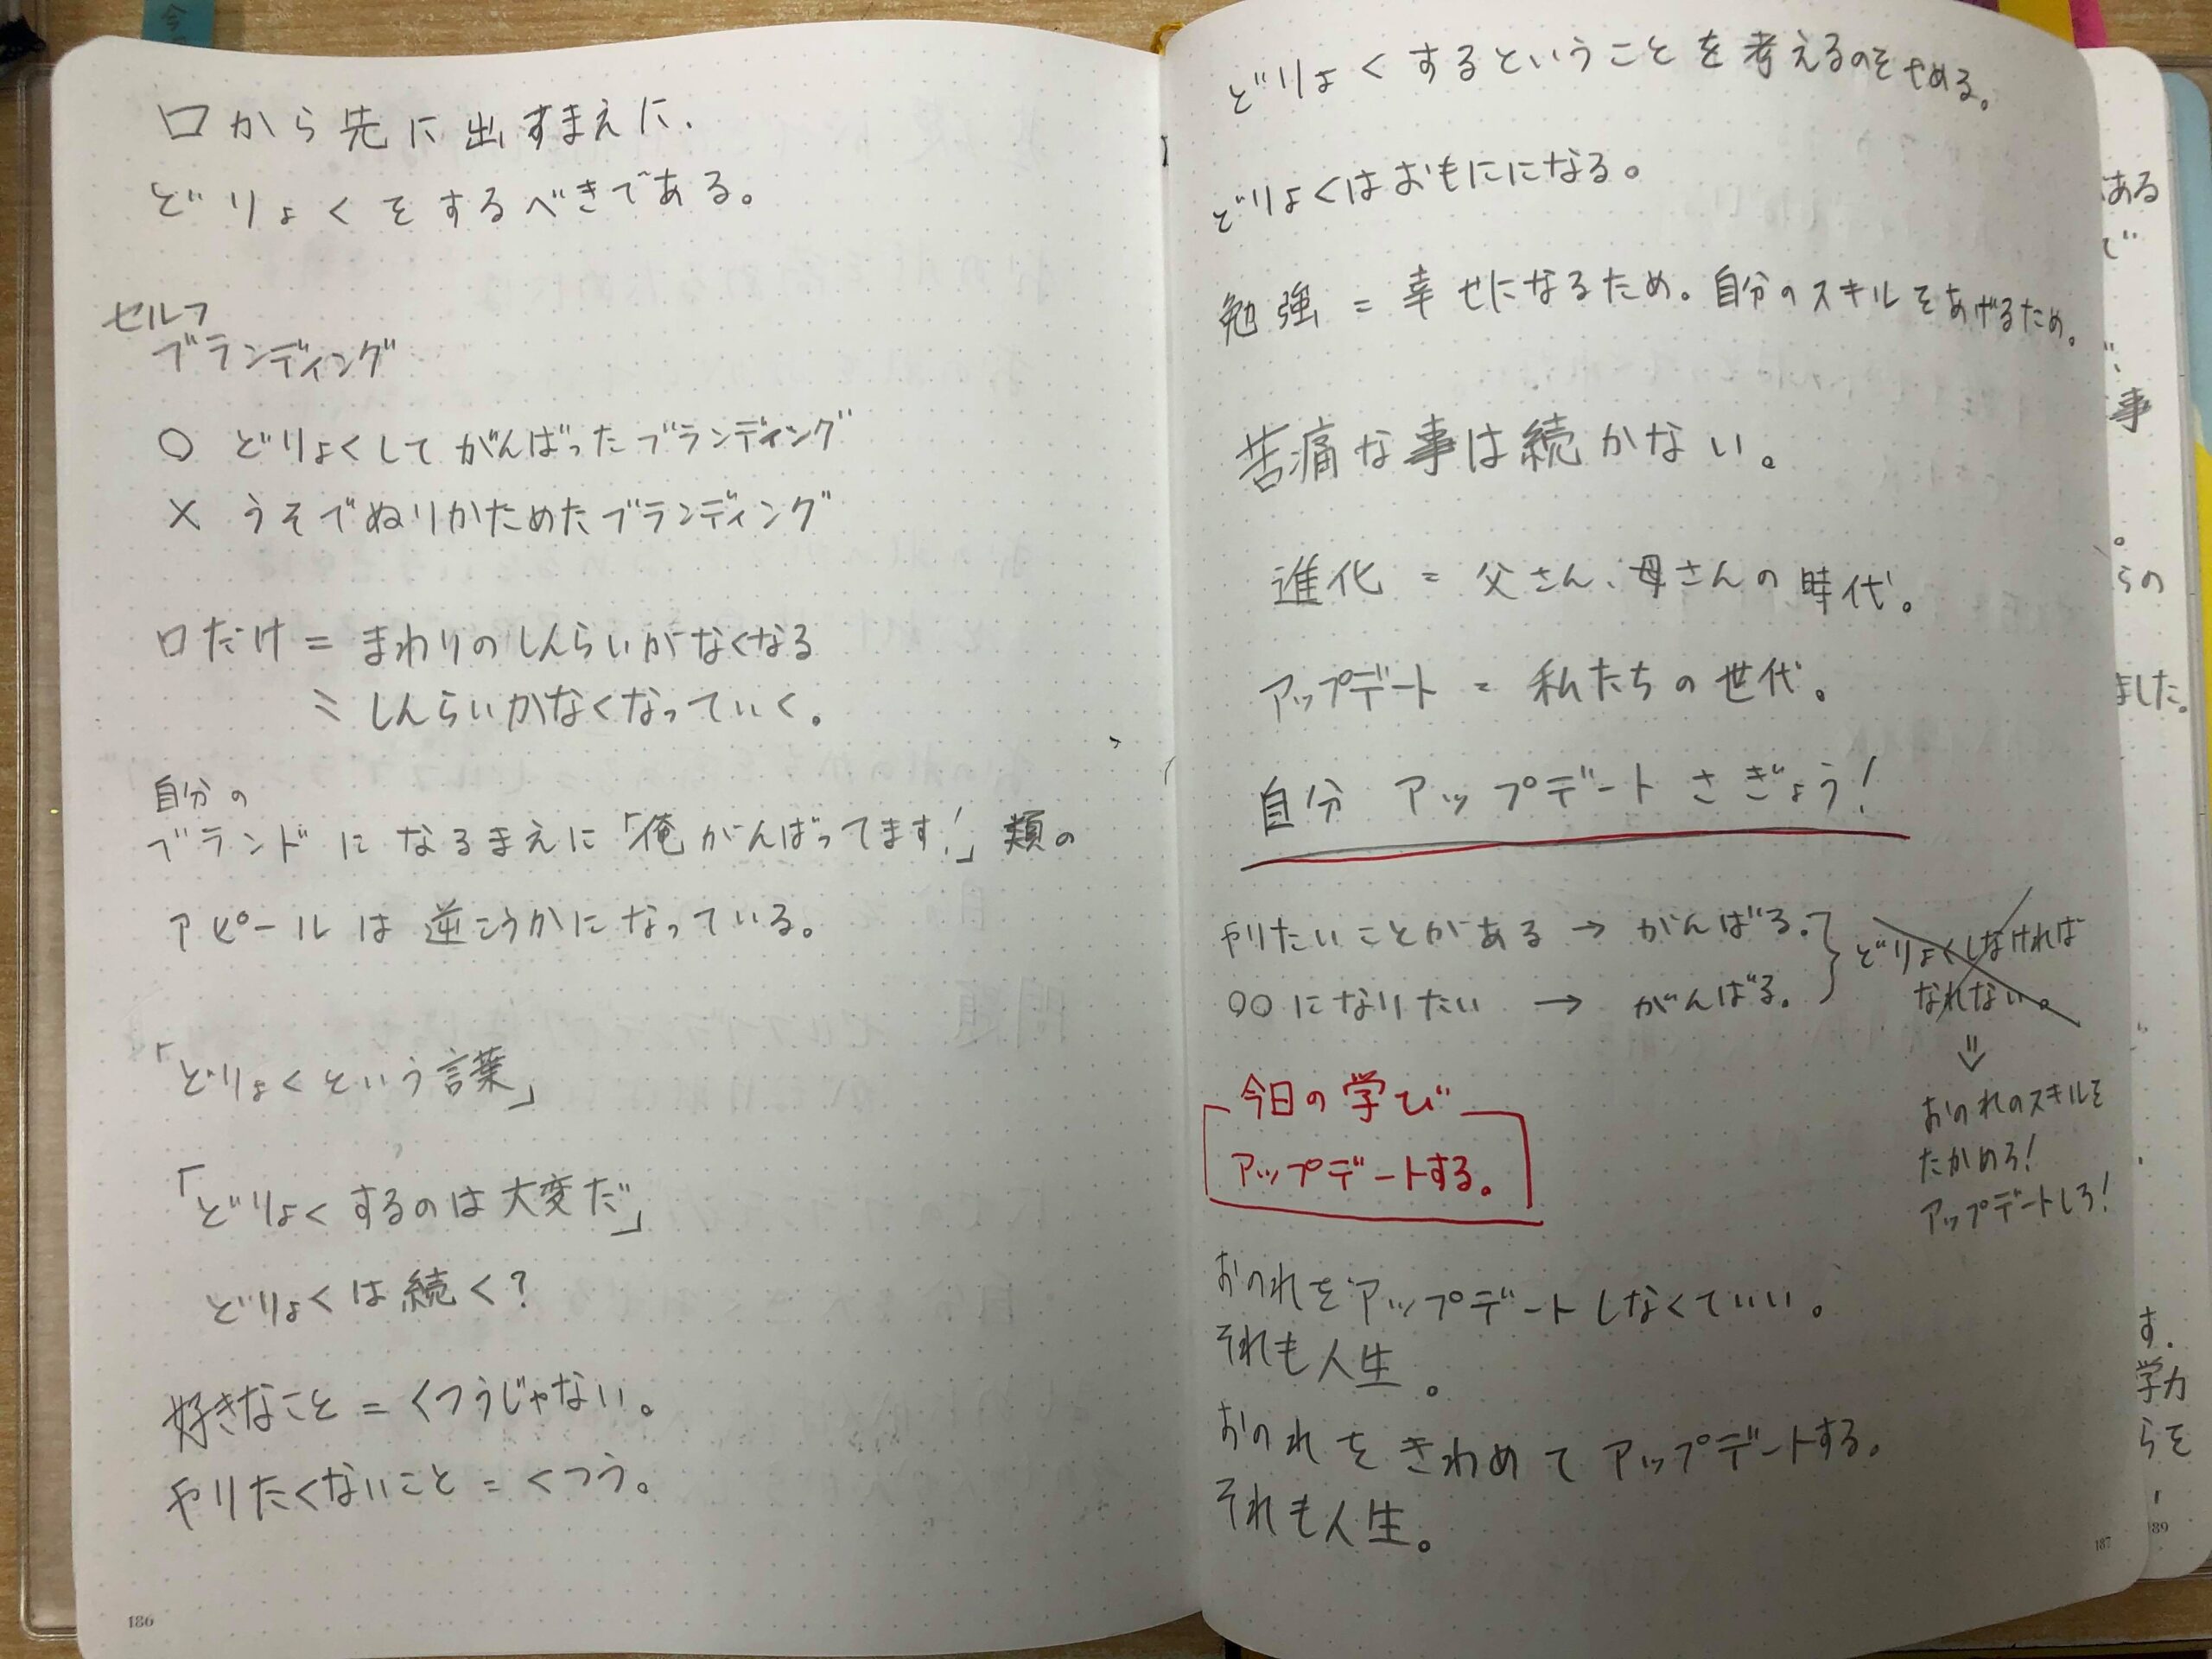 口から先に出すまえに、
どりょくをするべきである。
セルフ
ブランディング
○ どりょくして がんばったブランディング
× うそでぬりかためたブランディング
口だけ = まわりのしんらいがなくなる
≒ しんらいがなくなっていく。
自分の
ブランドになるまえに「俺がんばってます!」類の
アピールは逆こうかになっている。
「どりょくという言葉」
「どりょくするのは大変だ」
どりょくは続く?
好きなこと = くつうじゃない。
やりたくないこと = くつう。
186
どりょくするということを考えるのをやめる。
どりょくはおもにになる。
勉強 = 幸せになるため。自分のスキルをあげるため。
苦痛な事は続かない。
進化 = 父さん、母さんの時代。
アップデート = 私たちの世代。
自分 アップデート さぎょう!
やりたいことがある → がんばる。
○○になりたい → がんばる。
どりょくしなければ
なれない。
⇓
おのれのスキルを
たかめろ!
アップデートしろ!
今日の学び
アップデートする。
おのれをアップデートしなくていい。
それも人生。
おのれをきわめてアップデートする。
それも人生。
187
ある
で
事
らの
ました。
す.
学力
らを
189